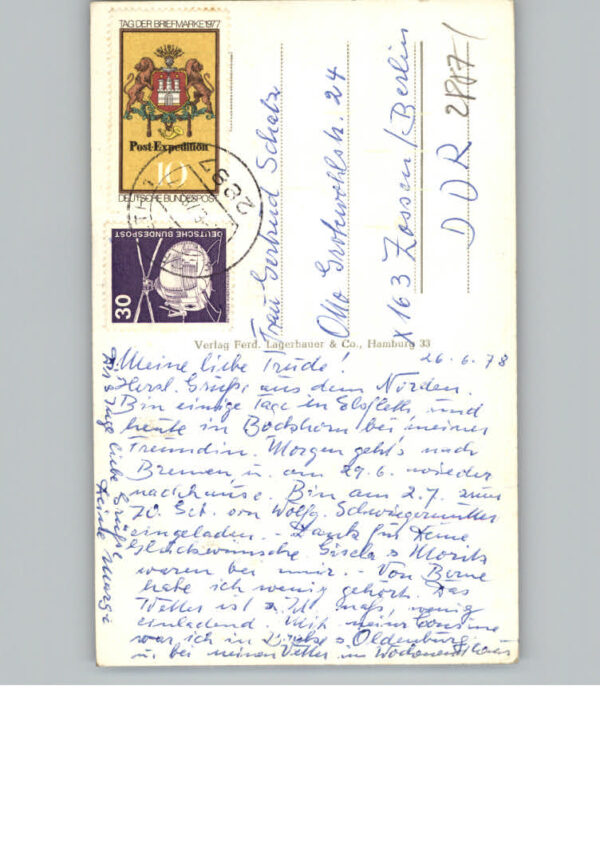 TAG DER BRIEFMARKE 1977
Post-Expedition
10
DEUTSCHE BUNDESPOST
DEUTSCHE BUNDESPOST
30
2897
Frau Gertrud Schatz
Otto Grotewohlstr. 24
X 163 Zossen/Berlin
DDR
Verlag Ferd. Lagerbauer & Co., Hamburg 33
26.6.78
Meine liebe Trude!
Herzl. Grüße aus dem Norden.
Bin einige Tage in Elsfleth und
heute in Bockhorn bei meiner
Freundin. Morgen geht's nach
Bremen u. am 29.6. wieder
nachhause. Bin am 2.7. zum
70. Geb. von Wolfg. Schwiegermutter
eingeladen. - Dank für Deine
Glückwünsche. Gisela & Moritz
waren bei mir. - Von
habe ich wenig gehört. Das
Wetter ist z. Zt. naß, wenig
einladend. Mit meiner Cousine
war ich in & Oldenburg
u. bei meinem Vetter im Wochenendhaus
liebe Grüße
Deine